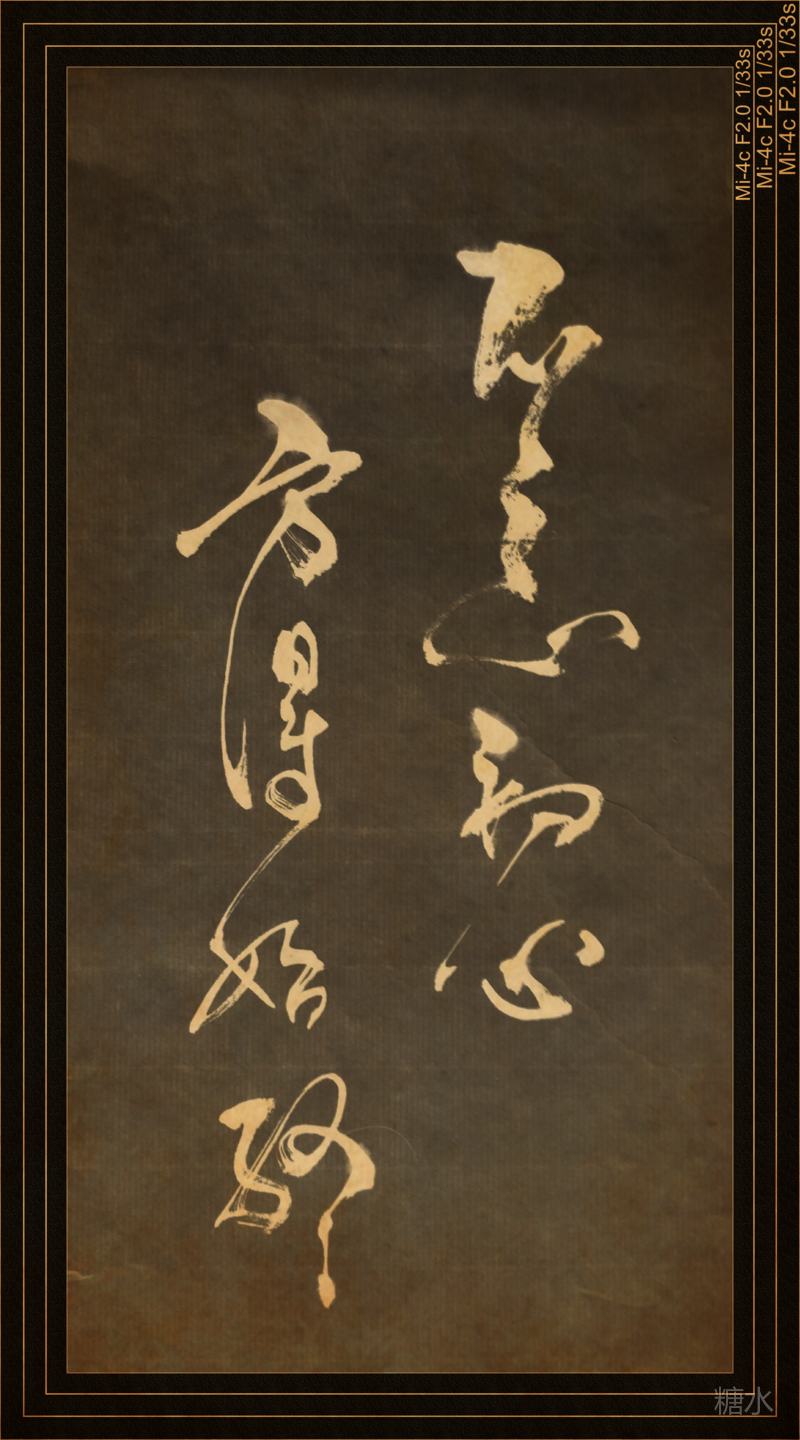 不忘初心
方得始终
Mi-4c F2.0 1/33s
Mi-4c F2.0 1/33s
Mi-4c F2.0 1/33s
糖水